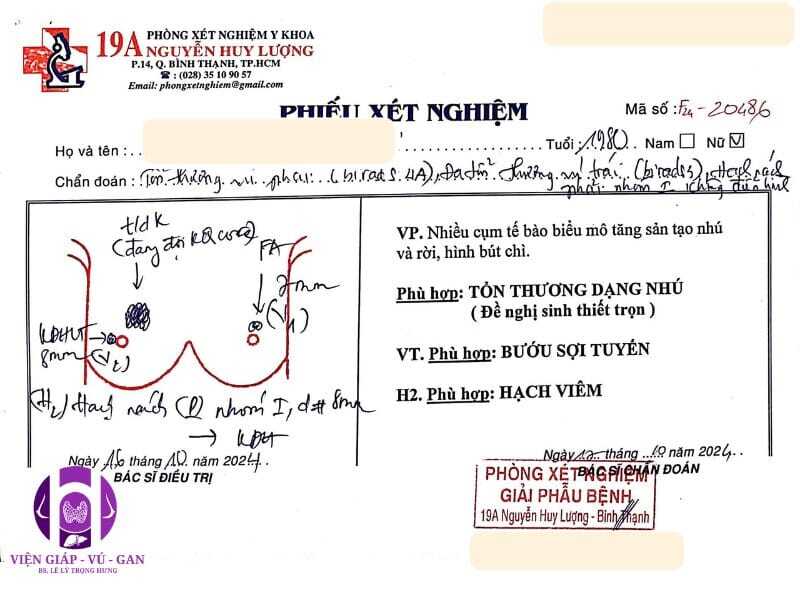 PHÒNG XÉT NGHIỆM Y KHOA
19A NGUYỄN HUY LƯỢNG
P.14, Q. BÌNH THẠNH, TP.HCM
☎ : (028) 35 10 90 57
Email: phongxetnghiem@gmail.com
PHIẾU XÉT NGHIỆM
Mã số : F24-20486
Họ và tên : Tuổi : 1980 Nam Nữ
Chẩn đoán : Tổn thương vú phải (birads 4A), Đa tổn thương vú trái (birads 3), Hạch nách
phải nhóm I
t/d K
(đang đợi KQ core)
FA
7mm
(V1)
8mm
(H2) Hạch nách (P) nhóm I, d# 8mm
Ngày 16 tháng 10 năm 2024
BÁC SĨ ĐIỀU TRỊ
VP. Nhiều cụm tế bào biểu mô tăng sản tạo nhú
và rời, hình bút chì.
Phù hợp: TỔN THƯƠNG DẠNG NHÚ
( Đề nghị sinh thiết trọn )
VT. Phù hợp: BƯỚU SỢI TUYẾN
H2. Phù hợp: HẠCH VIÊM
Ngày tháng 10 năm 2024
BÁC SĨ CHẨN ĐOÁN
PHÒNG XÉT NGHIỆM
GIẢI PHẪU BỆNH
19A Nguyễn Huy Lượng - Bình Thạnh
VIỆN GIÁP - VÚ - GAN
BS. LÊ LÝ TRỌNG HƯNG